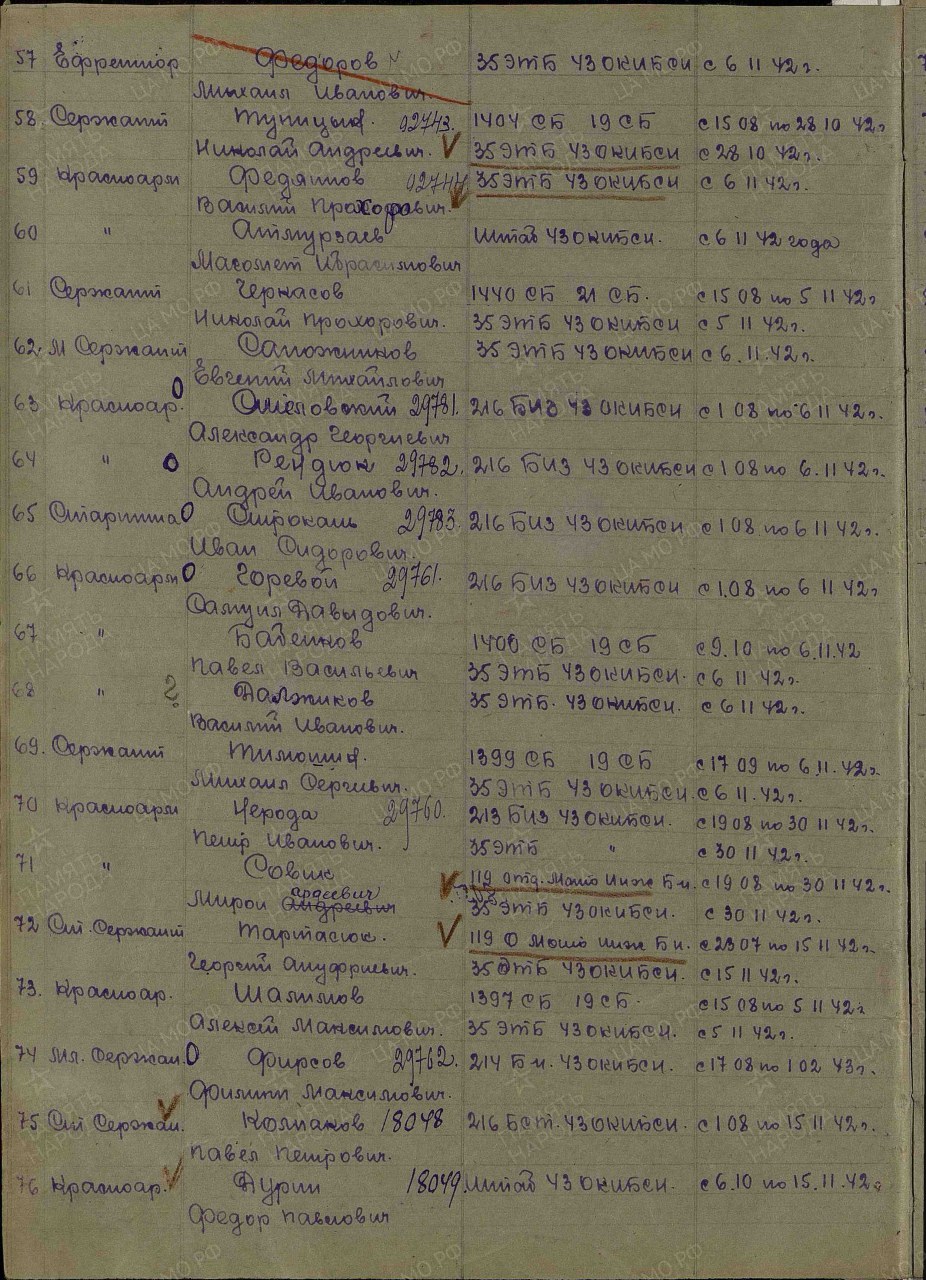 57 Ефрейтор Федоров 35 ЭТБ 43 ОКИБСН с 6 11 42 г.
Михаил Иванович.
58. Сержант 02743. 1404 СБ 19 СБ с 15 08 по 28 10 42 г
Николай Андреевич. 35 ЭТБ 43 ОКИБСН с 28 10 42 г.
59 Красноарм Федянов 02744 35 ЭТБ 43 ОКИБСН с 6 11 42 г.
Василий Прохорович.
60 " Атмурзаев Штаб 43 ОКИБСН. с 6 11 42 года
Ибрагимович
61 Сержант Черкасов 1440 СБ 21 СБ. с 15 08 по 5 11 42 г
Николай Прохорович. 35 ЭТБ 43 ОКИБСН с 5 11 42 г.
62. М Сержант Сапожников 35 ЭТБ 43 ОКИБСН с 6.11.42 г.
Евгений Михайлович
63 Красноар. О Смеловский 29781. 216 БИЗ 43 ОКИБСН с 1 08 по 6 11 42 г.
Александр Георгиевич
64 " О Рендюк 29782. 216 БИЗ 43 ОКИБСН с 1 08 по 6.11 42 г.
Андрей Иванович.
65 Старшина О Строкань 29783. 216 БИЗ 43 ОКИБСН. с 1 08 по 6 11 42 г.
Иван Сидорович.
66 Красноарм О Горевой 29761. 216 БИЗ 43 ОКИБСН с 1.08 по 6 11 42 г.
Самуил Давыдович.
67 " Бабенков 1400 СБ 19 СБ с 9.10 по 6.11.42
Павел Васильевич 35 ЭТБ 43 ОКИБСН. с 6 11 42 г.
68 " ? Должиков 35 ЭТБ. 43 ОКИБСН. с 6 11 42 г.
Василий Иванович.
69. Сержант 1399 СБ 19 СБ с 17 09 по 6.11.42 г.
Михаил Сергиевич. 35 ЭТБ 43 ОКИБСН. с 6 11.42 г.
70 Красноарм Нерода 29760. 213 БИЗ 43 ОКИБСН. с 19 08 по 30 11 42 г.
Петр Иванович. 35 ЭТБ " с 30 11 42 г.
71 " Совик 119 отд. Мото Инж Б-н. с 19 08 по 30 11 42 г.
Мирон Андреевич 35 ЭТБ 43 ОКИБСН. с 30 11 42 г.
72 Ст. Сержант Тартасюк. 119 О Мото инж Б н. с 23 07 по 15 11 42 г.
Георгий Ануфриевич. 35 ЭТБ 43 ОКИБСН. с 15 11 42 г.
73. Красноар. Шалимов 1397 СБ 19 СБ. с 15 08 по 5 11 42 г
Алексей Максимович. 35 ЭТБ 43 ОКИБСН. с 5 11 42 г.
74 Мл. Сержан. О Фирсов 29762. 214 Б-н. 43 ОКИБСН. с 17 08 по 1 02 43 г.
Филипп Максимович.
75 Ст Сержан. Колпаков 18048 216 Бст. 43 ОКИБСН. с 1 08 по 15 11 42 г.
Павел Петрович.
76 Красноар. Дурин 18049. Штаб 43 ОКИБСН. с 6.10 по 15.11.42 г.
Федор Павлович